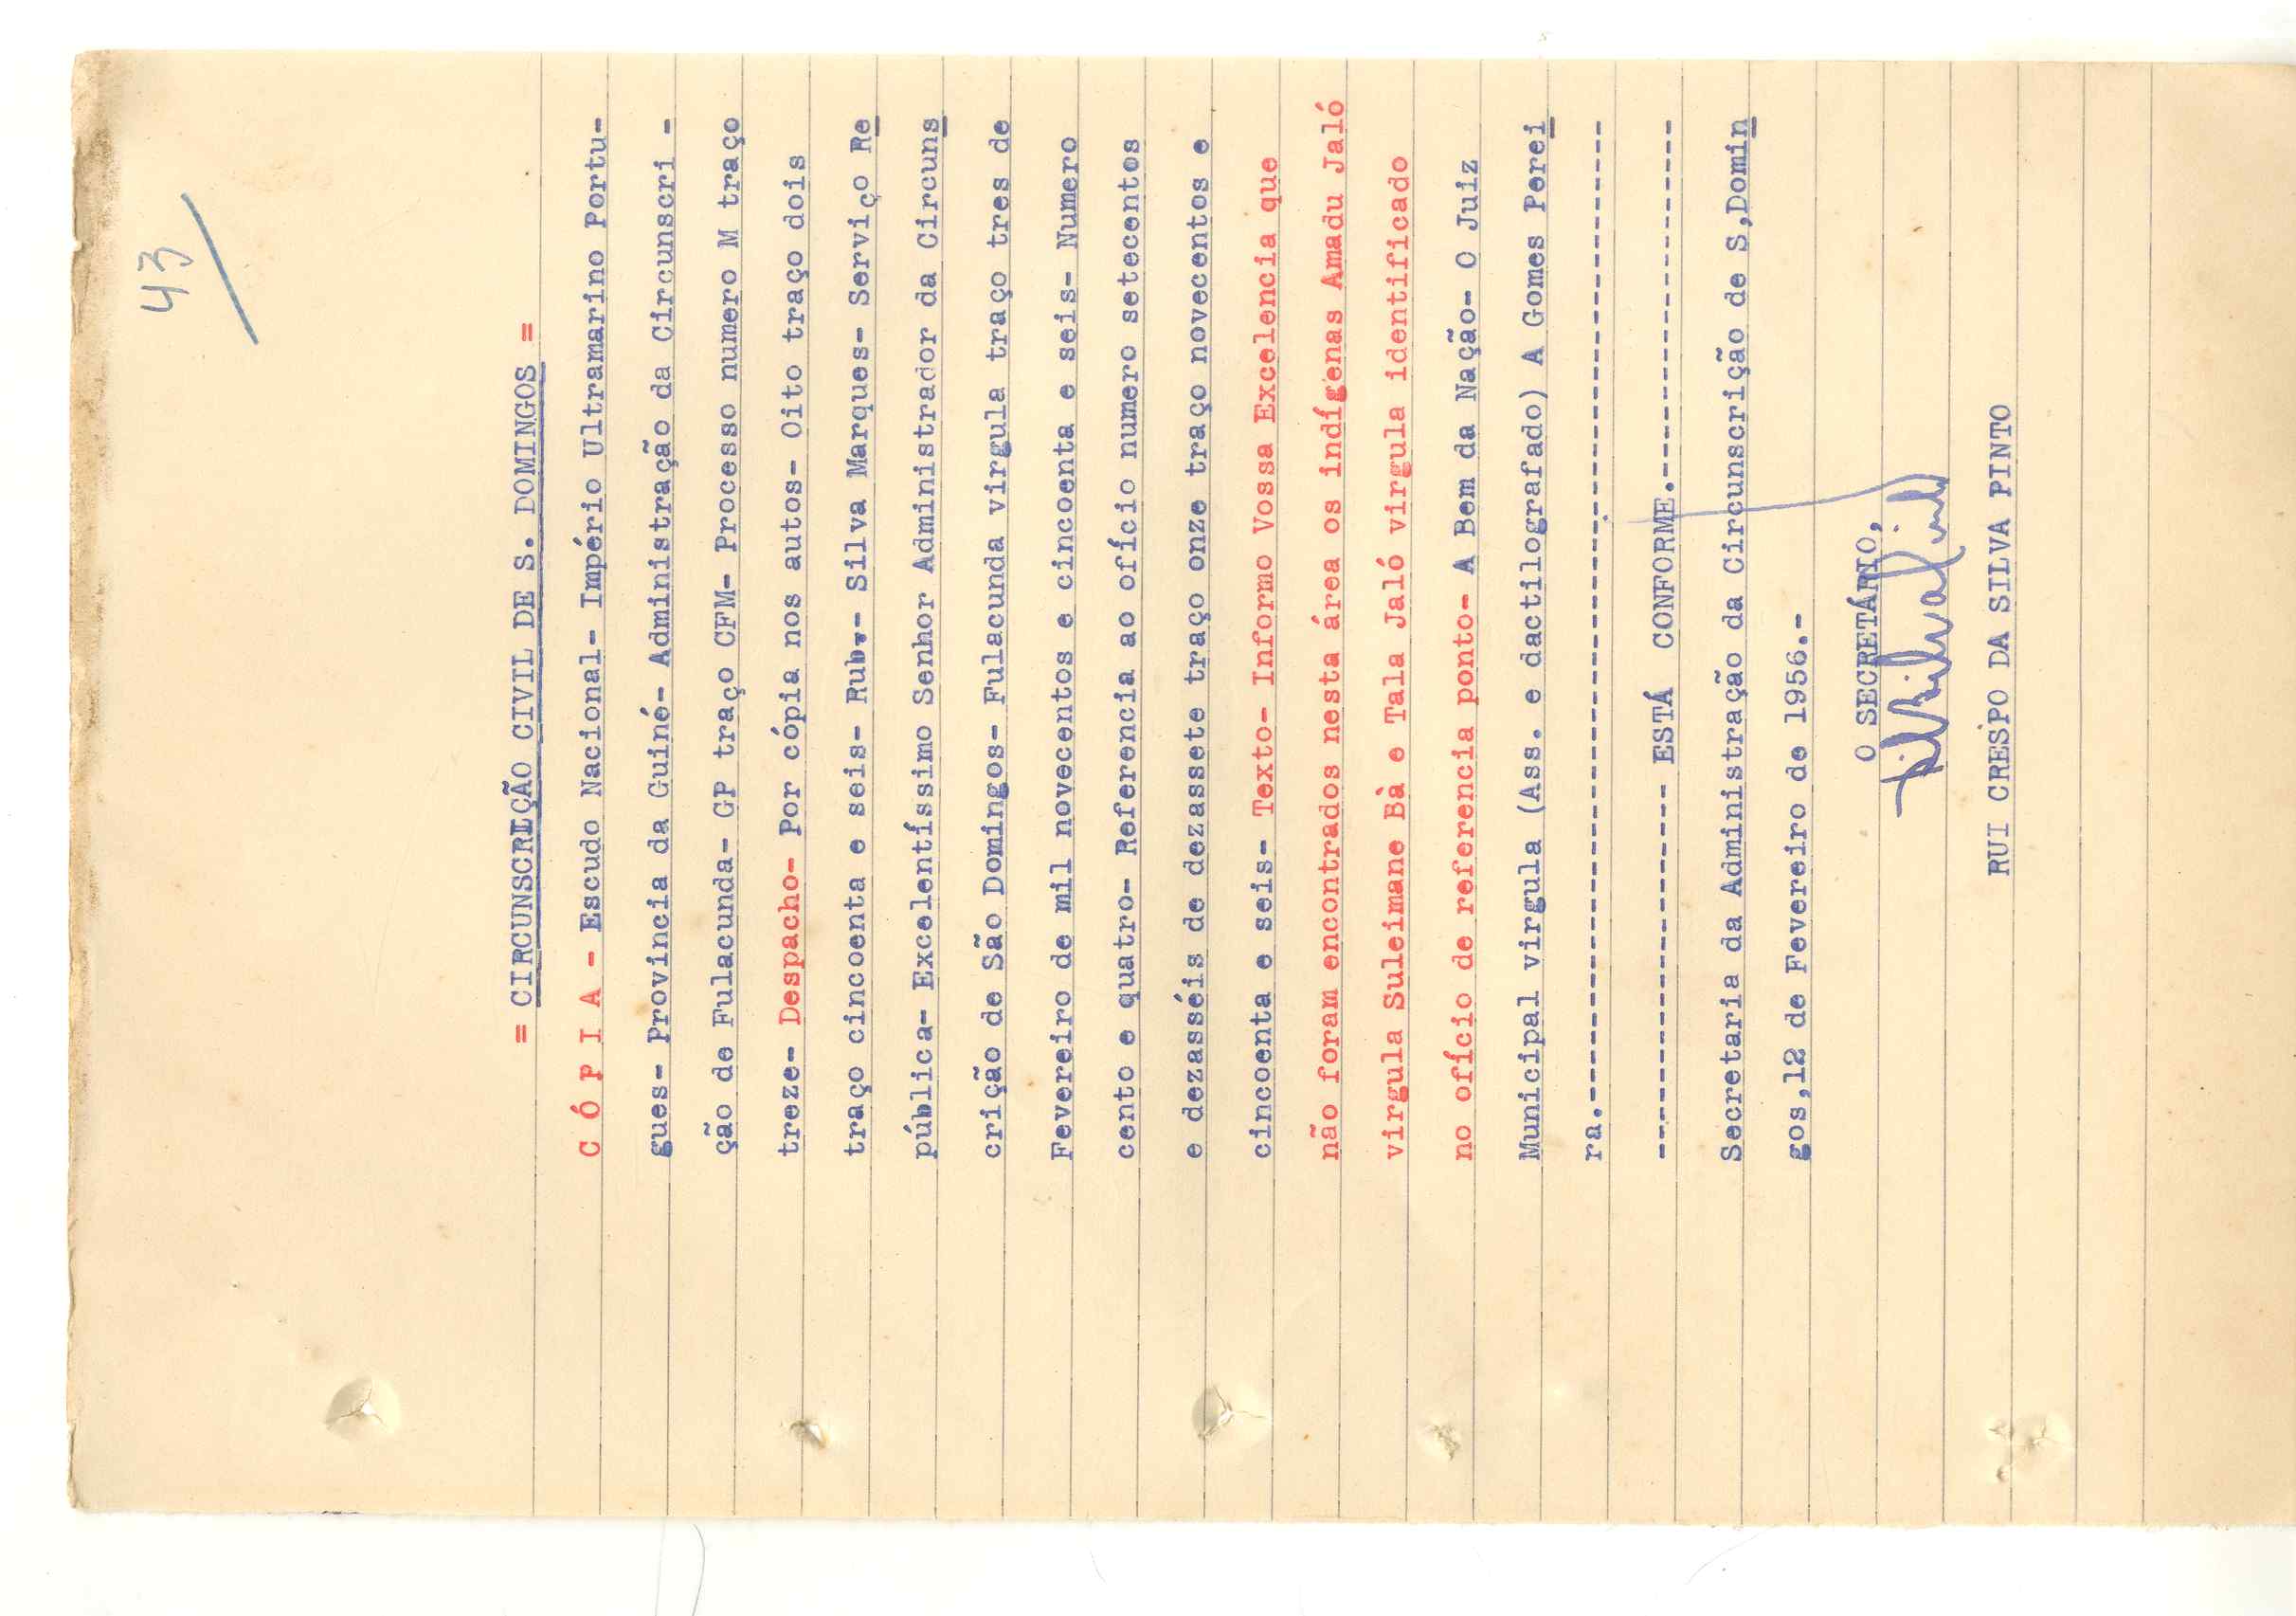 43
= CIRCUNSCRIÇÃO CIVIL DE S. DOMINGOS =
C Ó P I A - Escudo Nacional- Império Ultramarino Portu-
gues- Provincia da Guiné- Administração da Circunscri -
ção de Fulacunda- GP traço CFM- Processo numero M traço
treze- Despacho- Por cópia nos autos- Oito traço dois
traço cincoenta e seis- Rub.- Silva Marques- Serviço Re
pública- Excelentíssimo Senhor Administrador da Circuns
crição de São Domingos- Fulacunda virgula traço tres de
Fevereiro de mil novecentos e cincoenta e seis- Numero
cento e quatro- Referencia ao ofício numero setecentos
e dezasséis de dezassete traço onze traço novecentos e
cincoenta e seis- Texto- Informo Vossa Excelencia que
não foram encontrados nesta área os indígenas Amadu Jaló
virgula Suleimane Bà e Tala Jaló virgula identificado
no ofício de referencia ponto- A Bem da Nação- O Juiz
Municipal virgula (Ass. e dactilografado) A Gomes Perei
ra.----------------------------------------------------
-------------------- ESTÁ CONFORME.--------------------
Secretaria da Administração da Circunscrição de S,Domin
gos,12 de Fevereiro de 1956.-
O SECRETÁRIO,
RUI CRESPO DA SILVA PINTO